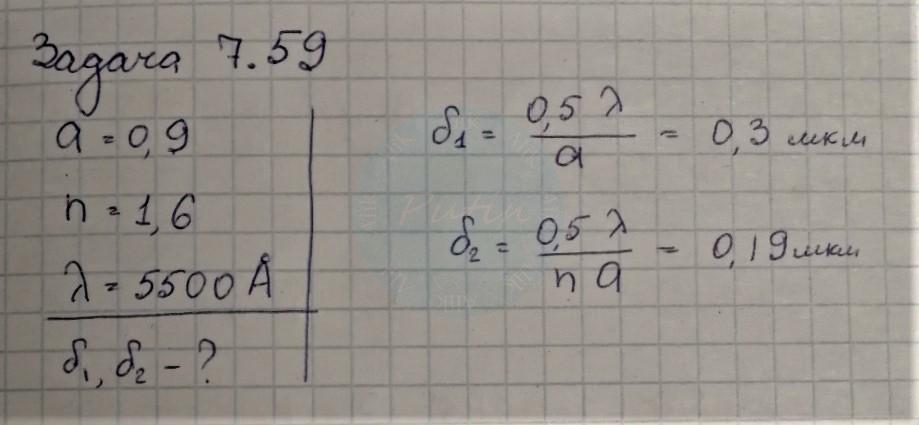 Задача 7.59
a = 0,9
n = 1,6
λ = 5500 Å
δ₁, δ₂ - ?
δ₁ = 0,5 λ / a = 0,3 мкм
δ₂ = 0,5 λ / n a = 0,19 мкм
Putin